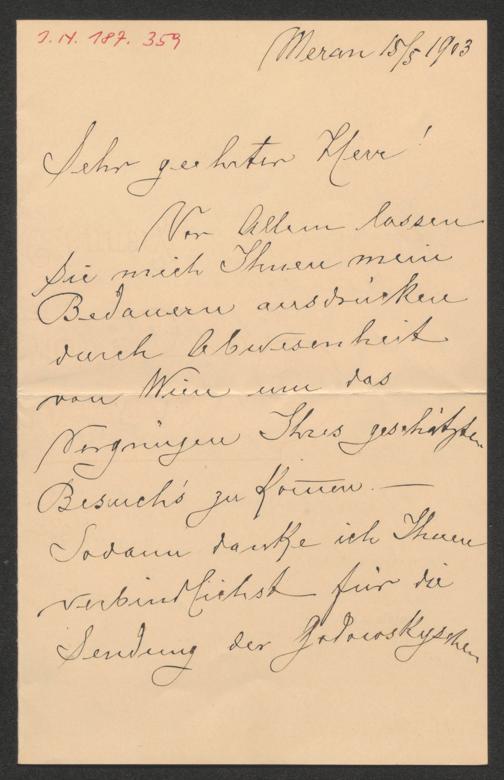 I. N. 187. 359
Meran 15/5 1903
Sehr geehrter Herr!
Vor Allem lassen
Sie mich Ihnen mein
Bedauern ausdrücken
durch Abwesenheit
von Wien um das
Vergnügen Ihres geschätzten
Besuch's zu kom̅en. —
Sodann danke ich Ihnen
verbindlichst für die
Sendung der Godowskyschen